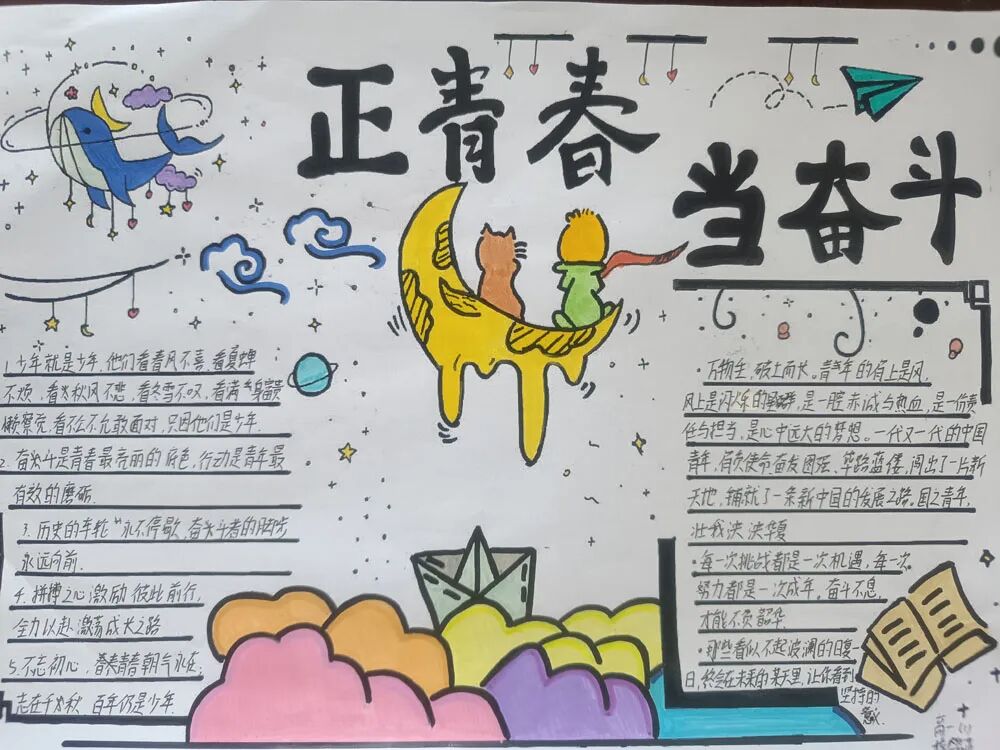 正青春
当奋斗
1.少年就是少年,他们看春风不喜,看夏蝉
不烦,看秋风不悲,看冬雪不叹,看满身富贵
懒察觉,看不公不允敢面对,只因他们是少年.
2.奋斗是青春最亮丽的底色,行动是青年最
有效的磨砺.
3.历史的车轮"永不停歇,奋斗者的脚步
永远向前.
4.拼搏之心激励彼此前行,
全力以赴激荡成长之路
5.不忘初心,青春朝气永在,
走在千秋,百年仍是少年.
·万物生,破土而长。青年的肩上是风,
风上是闪烁的,是一腔赤诚与热血,是一份责
任与担当,是心中远大的梦想。一代又一代的中国
青年,肩负使命奋发图强、筚路蓝缕,闯出了一片新
天地,铺就了一条新中国的发展之路。国之青年,
壮我泱泱华夏
·每一次挑战都是一次机遇,每一次
努力都是一次成年,奋斗不息,
才能不负韶华.
·那些看似不起波澜的日复一
日,终会在未来的某天里,让你看到
坚持的
意义.